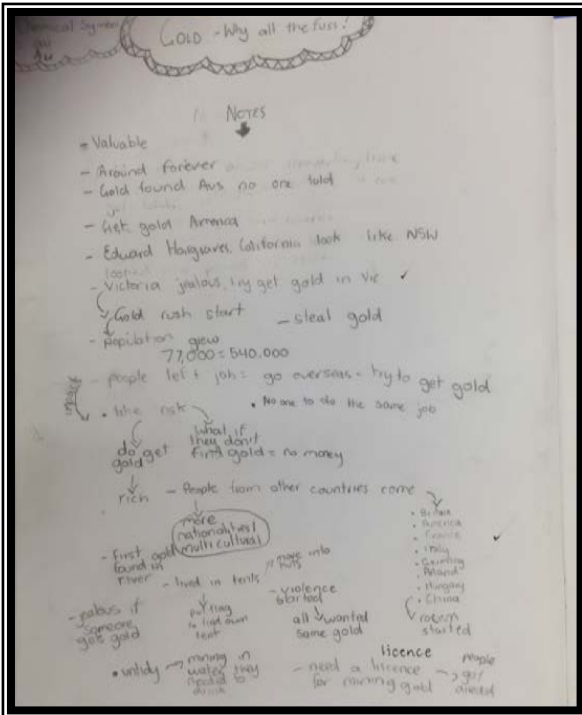 Chemical Symbol
au
Au
GOLD - Why all the fuss!
NOTES
• Valuable
- Around forever
- Gold found Aus no one told
- Get gold America
- Edward Hargraves, California look like NSW
- Victoria jealous, try get gold in Vic ✓
Gold rush start - steal gold
- Population grew
77,000 = 540.000
- people left job = go overseas - try to get gold
• take risk • No one to do the same job
do get gold
what if they don't find gold = no money
rich - People from other countries come
more nationalities/ multi cultural
• America
• Italy
• Poland
• Hungary
• China
racism started
- First gold found in river
- lived in tents
more into huts
- jealous if someone got gold
- violence started
all wanted same gold
• untidy → mining in water they needed to drink
licence
- need a licence for mining gold → people got